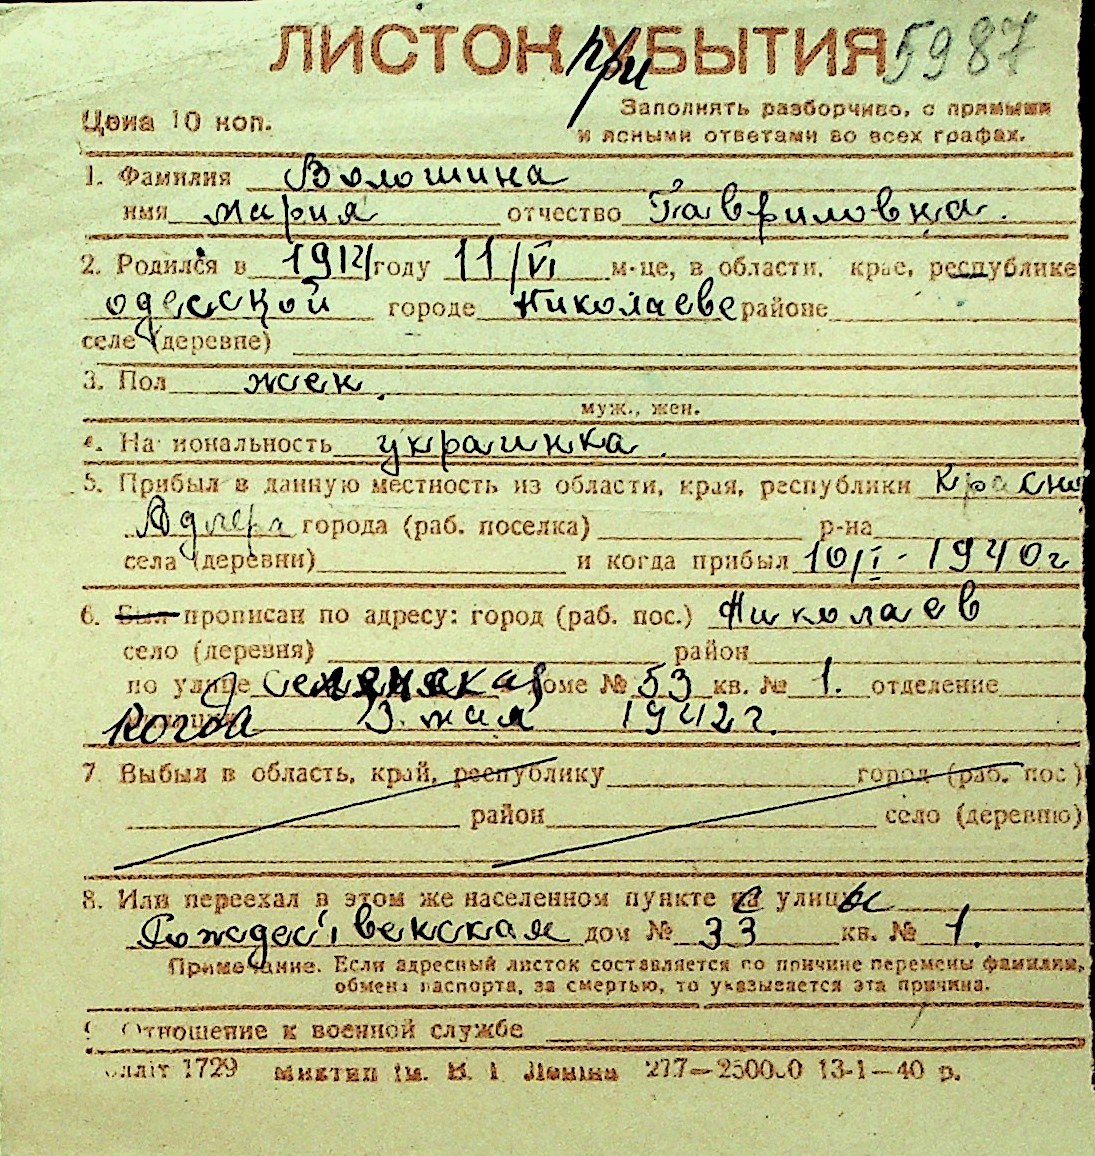 ЛИСТОК при УБЫТИЯ 5987
Цена 10 коп.
Заполнять разборчиво, с прямыми
и ясными ответами во всех графах.
1. Фамилия Волошина
имя мария отчество Гавриловна.
2. Родился в 1912 году 11/VI м-це, в области, крае, республике
одесской городе Николаеве районе
селе (деревне)
3. Пол жен.
муж., жен.
4. На иональность украинка.
5. Прибыл в данную местность из области, края, республики Красно
Адлера города (раб. поселка) р-на
села (деревни) и когда прибыл 10/I - 1940г
6. Был прописан по адресу: город (раб. пос.) Николаев
село (деревня) район
по улице доме № 53 кв. № 1. отделение
когда 3. мая 1942г.
7. Выбыл в область, край, республику город (раб. пос.)
район село (деревню)
8. Или переехал в этом же населенном пункте с улицы
дом № 33 кв. № 1.
Примечание. Если адресный листок составляется по причине перемены фамилии,
обмена паспорта, за смертью, то указывается эта причина.
9. Отношение к военной службе
1729 277—250000 13-1—40 р.